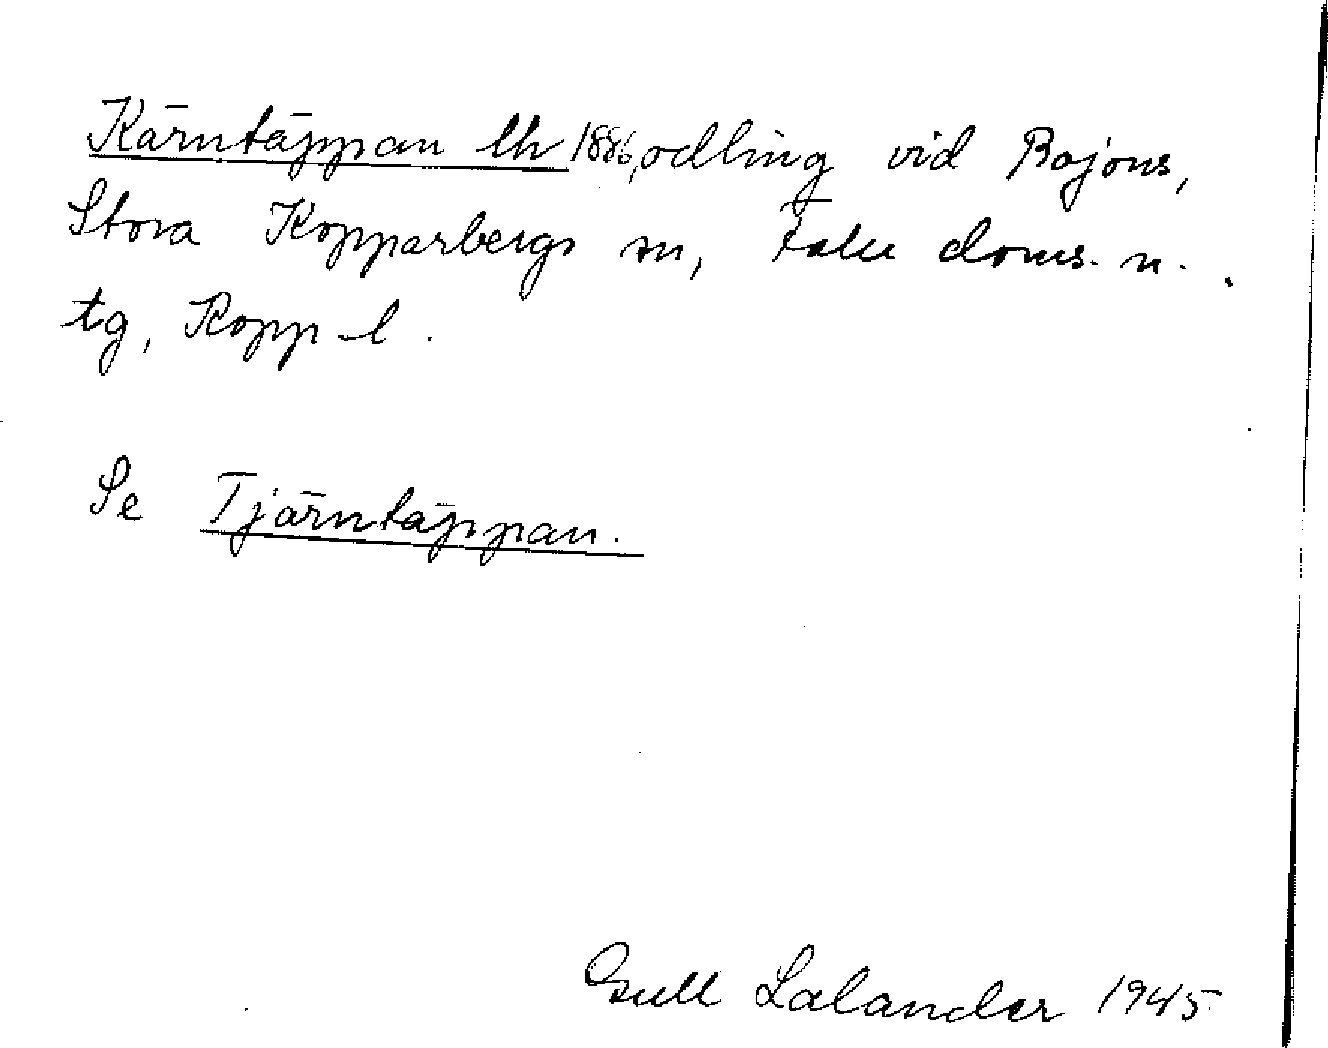 Kärntäppan lh 1886, odling vid Bojons,
Stora Kopparbergs sn, Falu doms. n.
tg, Kopp-l.
Se Tjärntäppan.
Gull Lalander 1945